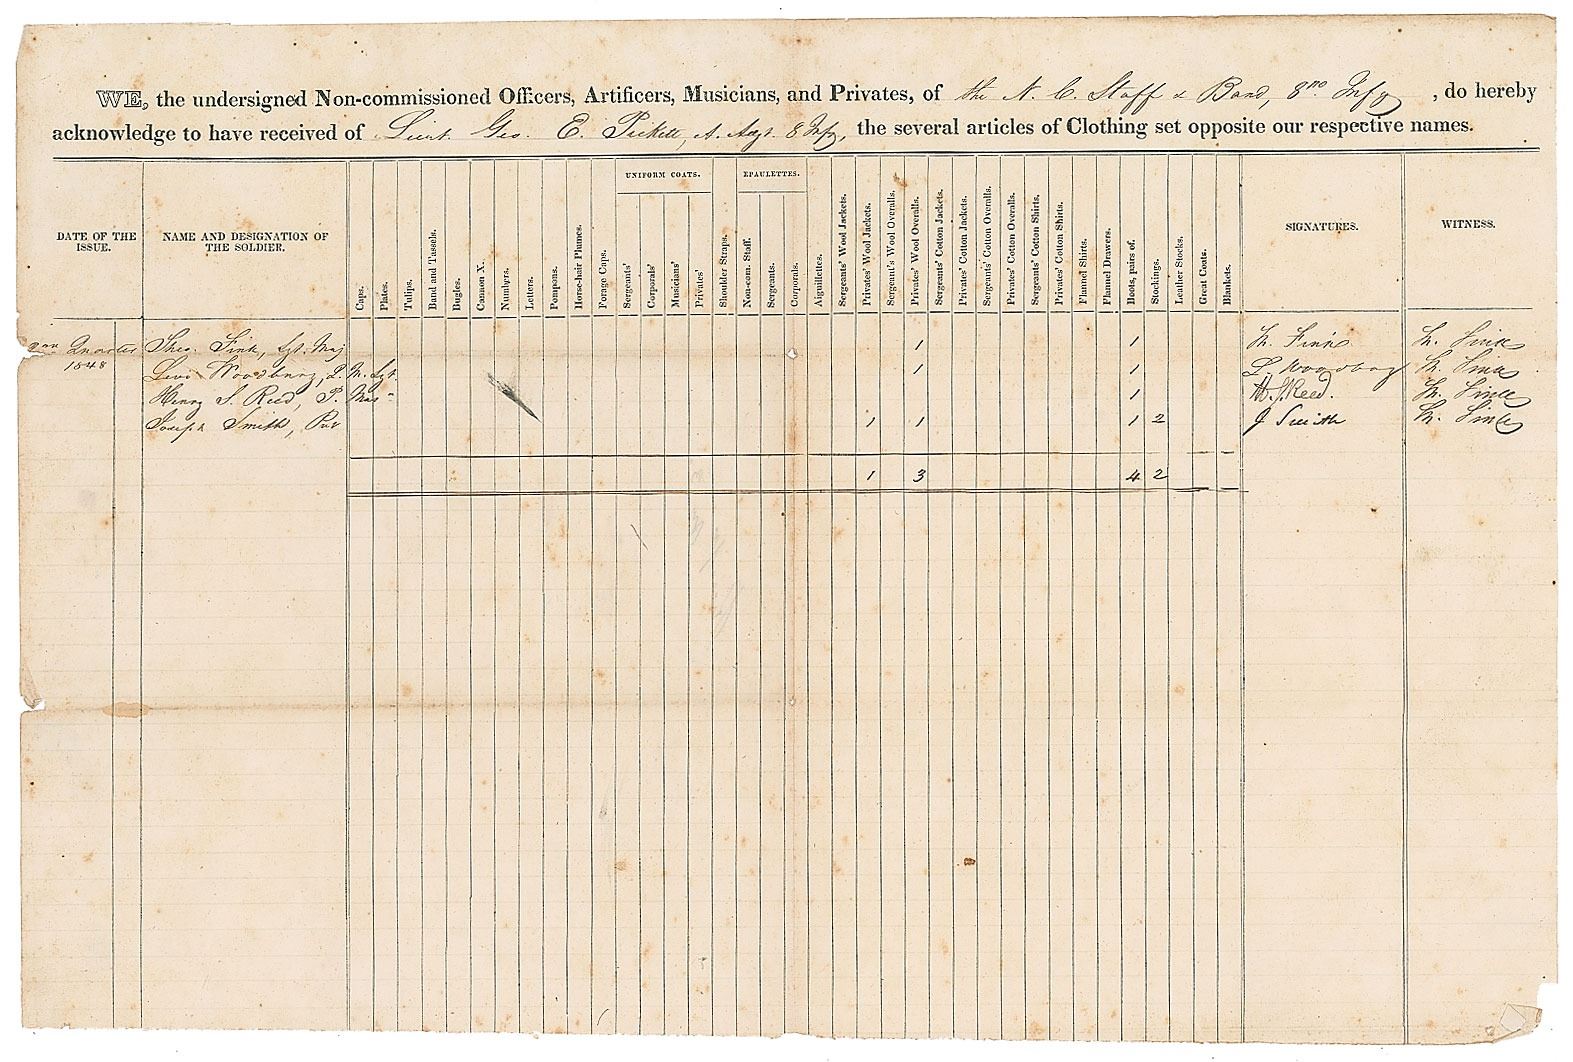 WE, the undersigned Non-commissioned Officers, Artificers, Musicians, and Privates, of the N. C. Staff & Band, 8th Infy, do hereby
acknowledge to have received of Lieut. Geo. E. Pickett, A. Adjt. 8 Infy, the several articles of Clothing set opposite our respective names.
DATE OF THE ISSUE.
NAME AND DESIGNATION OF THE SOLDIER.
Caps.
Plates.
Tulips.
Band and Tassels.
Bugles.
Cannon X.
Numbers.
Letters.
Pompons.
Horse-hair Plumes.
Forage Caps.
UNIFORM COATS.
Sergeants'
Corporals'
Musicians'
Privates'
Shoulder Straps.
EPAULETTES.
Non-com. Staff.
Sergeants.
Corporals.
Aiguillettes.
Sergeants' Wool Jackets.
Privates' Wool Jackets.
Sergeant's Wool Overalls.
Privates' Wool Overalls.
Sergeants' Cotton Jackets.
Privates' Cotton Jackets.
Sergeants' Cotton Overalls.
Privates' Cotton Overalls.
Sergeants' Cotton Shirts.
Privates' Cotton Shirts.
Flannel Shirts.
Flannel Drawers.
Boots, pairs of.
Stockings.
Leather Stocks.
Great Coats.
Blankets.
SIGNATURES.
WITNESS.
2nd Quarter Theo. Fink, Sgt. Maj 1 1 Th. Fink Th. Fink
1848 Levi Woodbury, Q. M. Sgt. 1 1 L Woodbury Th. Fink
Henry S. Reed, P. Mus 1 H. S. Reed. Th. Fink
Joseph Smith, Pvt 1 1 1 2 J Smith Th. Fink
1 3 4 2